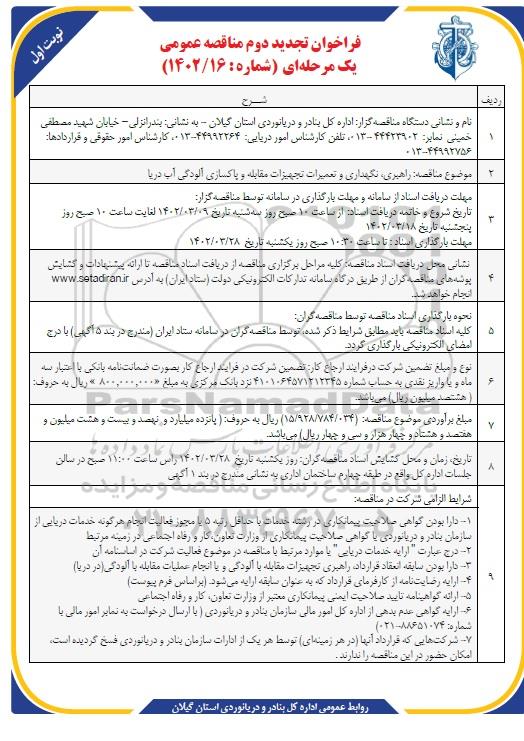 نوبت اول
فراخوان تجدید دوم مناقصه عمومی
یک مرحله‌ای (شماره: ۱۴۰۲/۱۶)
ردیف
شـــرح
۱
نام و نشانی دستگاه مناقصه‌گزار: اداره کل بنادر و دریانوردی استان گیلان – به نشانی: بندرانزلی– خیابان شهید مصطفی
خمینی نمابر: ۴۴۴۲۳۹۰۲-۰۱۳، تلفن کارشناس امور دریایی: ۴۴۹۹۲۲۶۴-۰۱۳، کارشناس امور حقوقی و قراردادها:
۴۴۹۹۲۷۵۶-۰۱۳
۲
موضوع مناقصه: راهبری، نگهداری و تعمیرات تجهیزات مقابله و پاکسازی آلودگی آب دریا
۳
مهلت دریافت اسناد از سامانه و مهلت بارگذاری در سامانه توسط مناقصه‌گزار:
تاریخ شروع و خاتمه دریافت اسناد: از ساعت ۱۰ صبح روز سه‌شنبه تاریخ ۱۴۰۲/۰۳/۰۹ لغایت ساعت ۱۰ صبح روز
پنجشنبه تاریخ ۱۴۰۲/۰۳/۱۸
مهلت بارگذاری اسناد : تا ساعت ۱۰:۳۰ صبح روز یکشنبه تاریخ ۱۴۰۲/۰۳/۲۸
۴
نشانی محل دریافت اسناد مناقصه: کلیه مراحل برگزاری مناقصه از دریافت اسناد مناقصه تا ارائه پیشنهادات و گشایش
پوشه‌های مناقصه‌گران از طریق درگاه سامانه تدارکات الکترونیکی دولت (ستاد ایران) به آدرس www.setadiran.ir
انجام خواهد شد.
۵
نحوه بارگذاری اسناد مناقصه توسط مناقصه‌گران:
کلیه اسناد مناقصه باید مطابق شرایط ذکر شده، توسط مناقصه‌گران در سامانه ستاد ایران (مندرج در بند ۵ آگهی) با درج
امضای الکترونیکی بارگذاری گردد.
۶
نوع و مبلغ تضمین شرکت درفرایند ارجاع کار: تضمین شرکت در فرایند ارجاع کار بصورت ضمانت‌نامه بانکی با اعتبار سه
ماه و یا واریز نقدی به حساب شماره ۴۱۰۱۰۶۴۵۷۱۲۱۲۳۴۵ نزد بانک مرکزی به مبلغ «۸۰۰,۰۰۰,۰۰۰ » ریال به حروف:
( هشتصد میلیون ریال) می‌باشد.
۷
مبلغ برآوردی موضوع مناقصه: (۱۵/۹۲۸/۷۸۴/۰۳۴) ریال به حروف: ( پانزده میلیارد و نهصد و بیست و هشت میلیون و
هفتصد و هشتاد و چهار هزار و سی و چهار ریال) می‌باشد.
۸
تاریخ، زمان و محل گشایش اسناد مناقصه‌گران: روز یکشنبه تاریخ ۱۴۰۲/۰۳/۲۸ راس ساعت ۱۱:۰۰ صبح در سالن
جلسات اداره کل واقع در طبقه چهارم ساختمان اداری به نشانی مندرج در بند ۱ آگهی
۹
شرایط الزامی شرکت در مناقصه:
۱- دارا بودن گواهی صلاحیت پیمانکاری در رشته خدمات با حداقل رتبه ۵ یا مجوز فعالیت انجام هرگونه خدمات دریایی از
سازمان بنادر و دریانوردی یا گواهی صلاحیت پیمانکاری از وزارت تعاون، کار و رفاه اجتماعی در زمینه مرتبط
۲- درج عبارت " ارایه خدمات دریایی" یا موارد مرتبط با مناقصه در موضوع فعالیت شرکت در اساسنامه آن
۳- دارا بودن سابقه انعقاد قرارداد، راهبری تجهیزات مقابله با آلودگی و یا انجام عملیات مقابله با آلودگی(در دریا)
۴- ارایه رضایت‌نامه از کارفرمای قرارداد که به عنوان سابقه ارایه می‌شود. (براساس فرم پیوست)
۵- ارائه گواهینامه تایید صلاحیت ایمنی پیمانکاری معتبر از وزارت تعاون، کار و رفاه اجتماعی
۶- ارایه گواهی عدم بدهی از اداره کل امور مالی سازمان بنادر و دریانوردی ( با ارسال درخواست به نمابر امور مالی با
شماره: ۸۸۶۵۱۰۷۴-۰۲۱)
۷- شرکت‌هایی که قرارداد آنها (در هر زمینه‌ای) توسط هر یک از ادارات سازمان بنادر و دریانوردی فسخ گردیده است،
امکان حضور در این مناقصه را ندارند .
روابط عمومی اداره کل بنادر و دریانوردی استان گیلان
ParsNamadData
پایگاه اطلاع رسانی مناقصه و مزایده